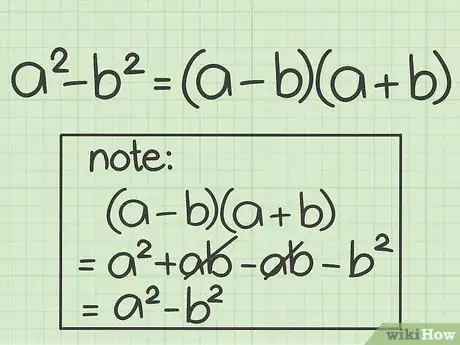 a²-b² = (a-b)(a+b)
note:
(a-b)(a+b)
= a²+ab-ab-b²
= a²-b²
wikiHow